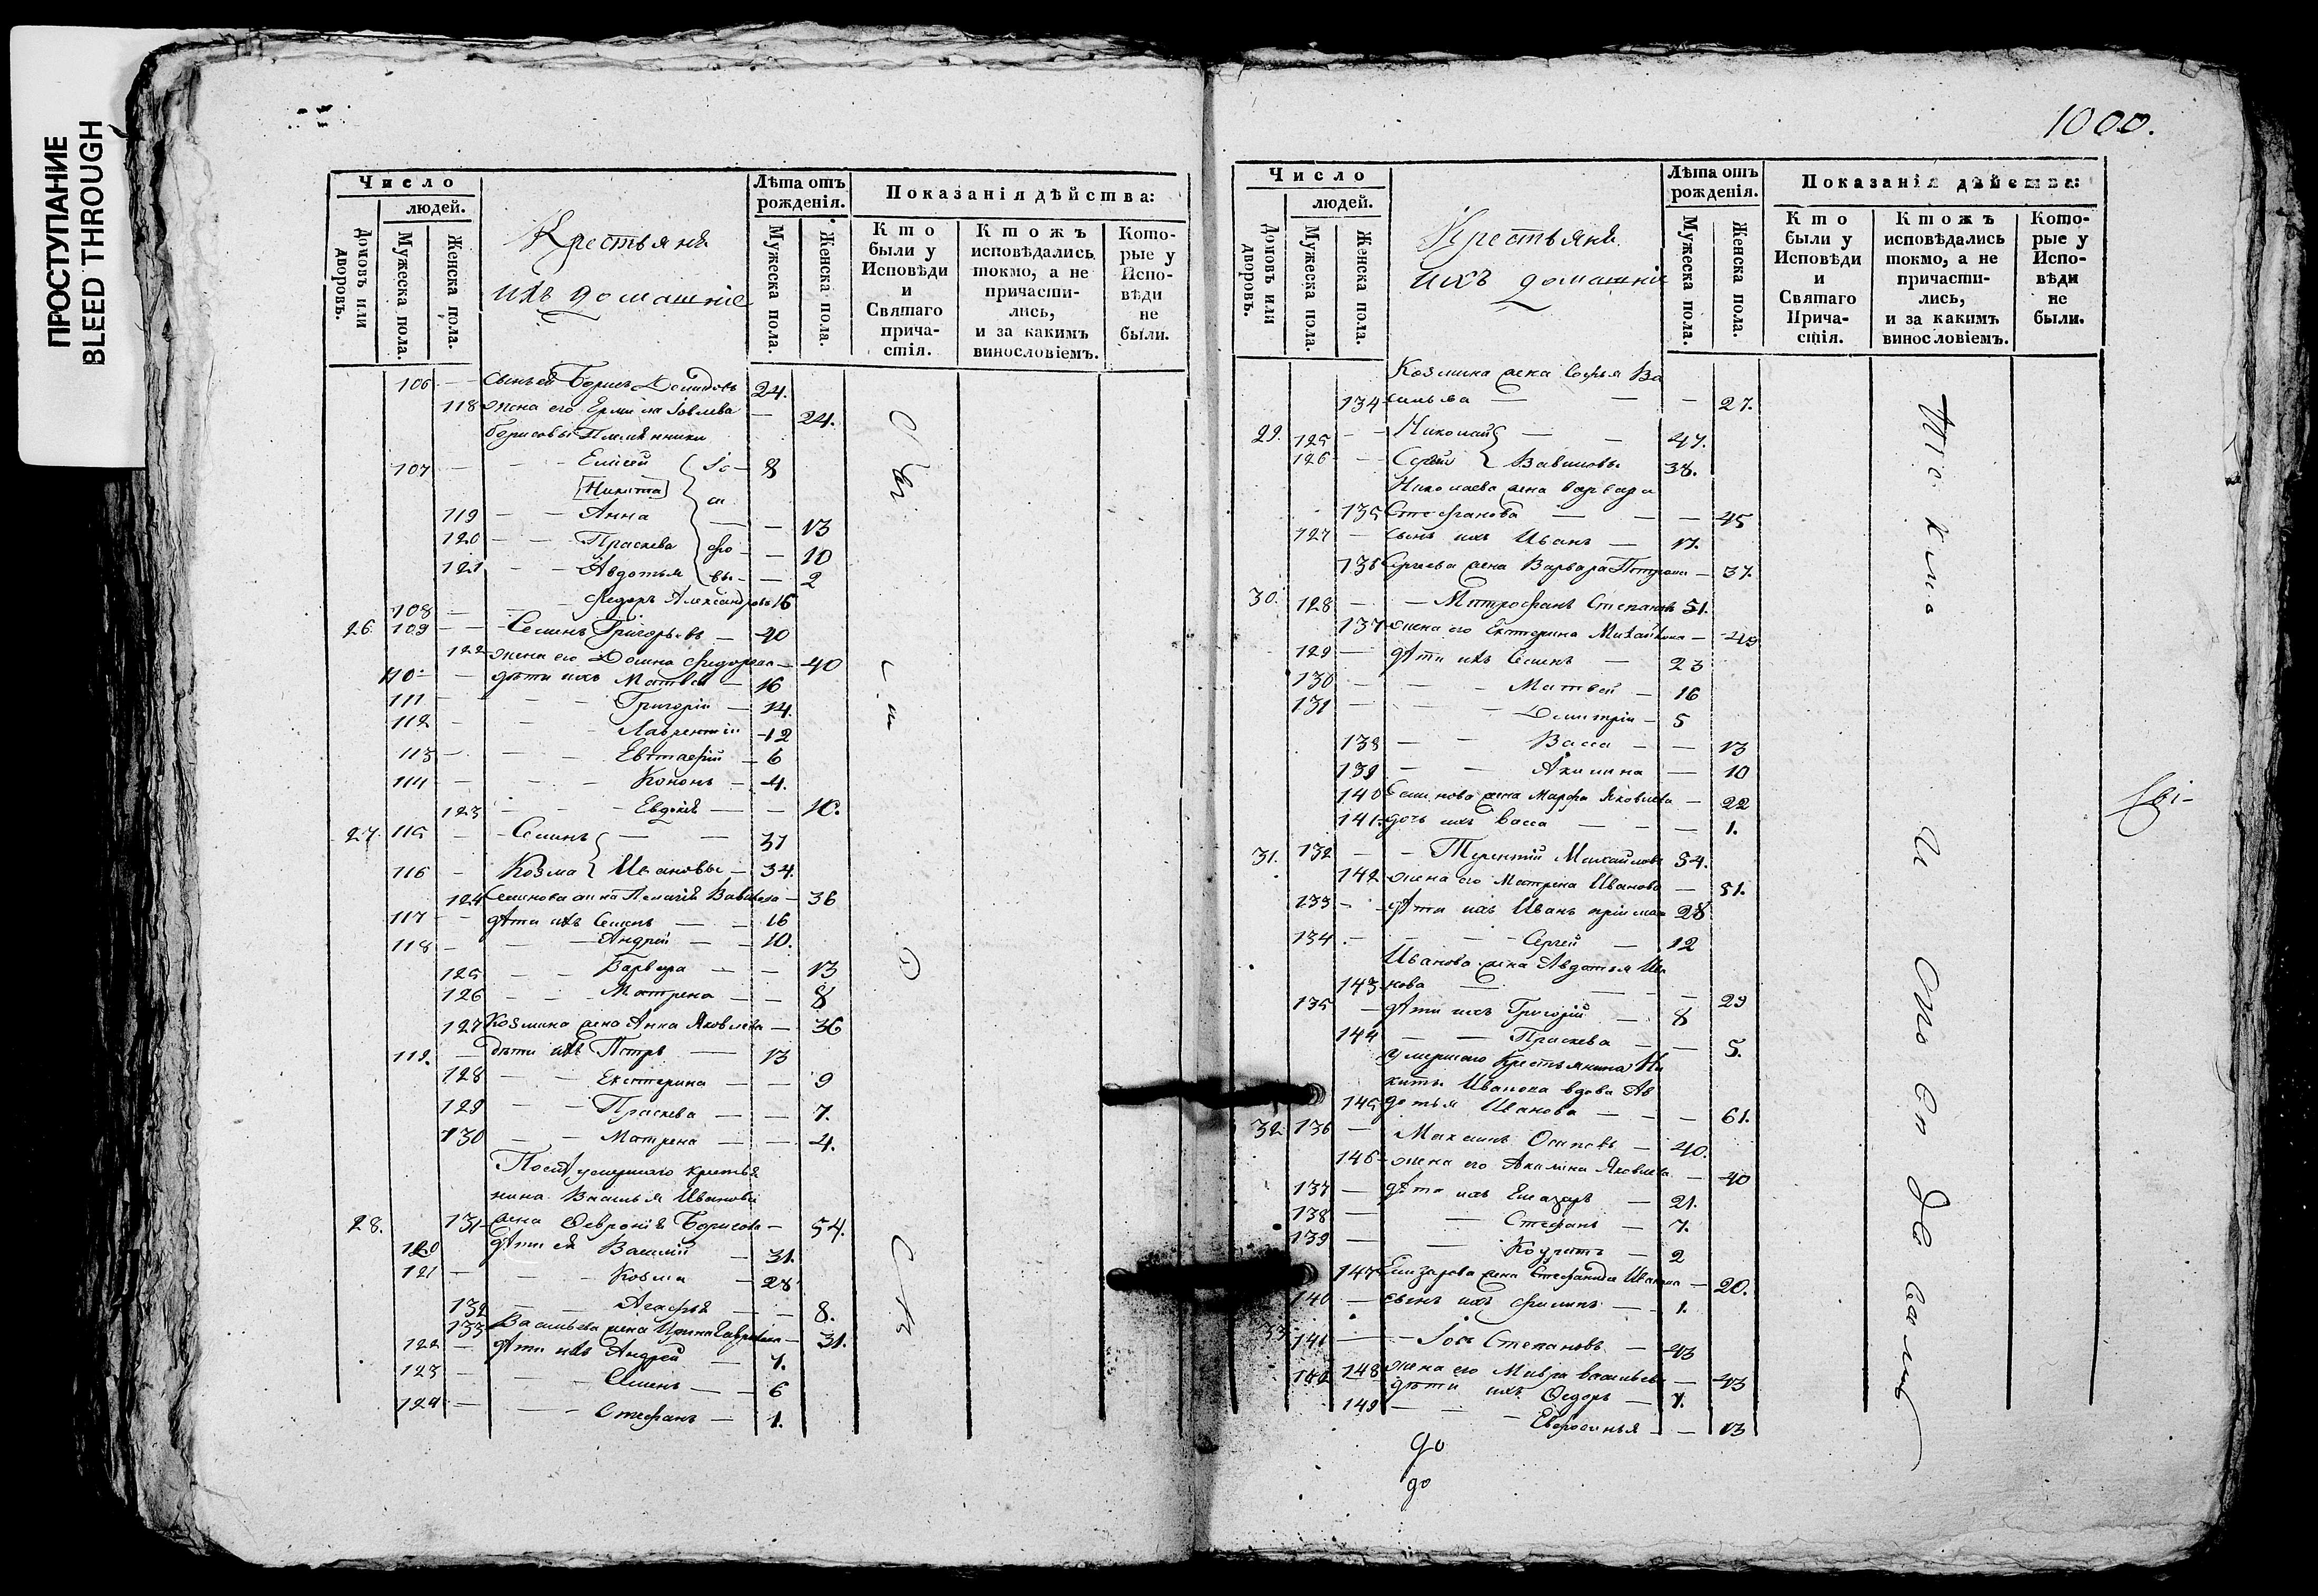 ПРОСТУПАНИЕ
BLEED THROUGH
Число
людей.
Домовъ или дворовъ.
Мужеска пола.
Женска пола.
Крестьяне
ихъ домашніе
Лѣта отъ рожденія.
Мужеска пола.
Женска пола.
Показанія дѣйства:
Кто были у Исповѣди и Святаго причастія.
Ктожъ исповѣдались токмо, а не причастились, и за какимъ винословіемъ.
Которые у Исповѣди не были.
106 — сынъ ея Борисъ Демидовъ 24.
118 жена его Ермила Іовлева — 24.
Борисовы Племянники
107 — — Елисей 8
[Никита]
119 — — Анна — — 13
120 — — Праскева — — 10
121 — — Авдотья — — 2
108 — — Федоръ Александровъ 16
26. 109 — — Семенъ Григорьевъ — 40
122 жена его Домна Федорова — 40
110 — дѣти ихъ Матвей — 16
111 — — Григорій — 14.
112 — — Лаврентій — 12
113 — — Евстафій — 6
114 — — Кононъ — 4.
123 — — Евдокія — — 10.
27. 115 — Семенъ — — 37
116 — Козма Ивановы — 34.
124 Семенова жена Пелагія Вавилова — 36
117 — дѣти ихъ Семенъ — 16
118 — — Андрей — 10.
125 — — Варвара — — 13
126 — — Матрена — — 8
127 Козмина жена Анна Яковлева — 36
119. — дѣти ихъ Петръ — 13
128 — — Екатерина — — 9
129 — — Праскева — — 7.
130 — — Матрена — — 4.
Послѣ умершаго крестья
нина Василья Иванова
28. 131 жена Февронія Борисова — 54.
120 дѣти ея Василій — 31.
121 — — Козма — 28
132 — — Агафья — — 8.
133 Васильева жена Ирина Гаврилова — 31.
122 — дѣти ихъ Андрей — 7.
123 — — Семенъ — 6
124 — — Стефанъ — 1.
1000.
Число
людей.
Домовъ или дворовъ.
Мужеска пола.
Женска пола.
Крестьяне
ихъ домашніе
Лѣта отъ рожденія.
Мужеска пола.
Женска пола.
Показанія дѣйства:
Кто были у Исповѣди и Святаго Причастія.
Ктожъ исповѣдались токмо, а не причастились, и за какимъ винословіемъ.
Которые у Исповѣди не были.
Козмина жена Софья Ва
134 сильева — — 27.
29. 125 — — Николай — 47.
126 — — Сергей Вавиловы 38.
Николаева жена Варвара
135 Стефанова — — 45
127 — сынъ ихъ Иванъ — 17.
136 Сергеева жена Варвара Петрова — 37.
30. 128 — — Митрофанъ Степановъ 51.
137 жена его Екатерина Михайлова — 49
129 — дѣти ихъ Семенъ — 23
130 — — Матвей — 16
131 — — Димитрій — 5
138 — — Васса — — 13
139 — — Акилина — 10
140 Семенова жена Марфа Яковлева — 22
141 дочь ихъ Васса — — 1.
31. 132 — — Терентій Михайловъ 54.
142 жена его Матрена Иванова — 51.
133 — дѣти ихъ Иванъ пріимыш 28
134 — — Сергей — 12
Иванова жена Авдотья Ива
143 нова — — 29
135 — дѣти ихъ Григорій — 8
144 — — Праскева — — 5.
умершаго Крестьянина Ни
киты Иванова вдова Ав
145 дотья Иванова — — 61.
32 136 — Максимъ Осиповъ — 40.
146 жена его Акилина Яковлева — 40
137 — дѣти ихъ Елизаръ — 21.
138 — — Стефанъ — 7.
139 — — Кодратъ — 2
147 Елизарова жена Стефанида Иванова — 20.
140 — сынъ ихъ Филипъ — 1.
33 141 — — Іовъ Степановъ — 43
148 жена его Мавра Васильева — 43
142 дѣти ихъ Федоръ — 7.
149 — — Евфросинья — — 13
до
до